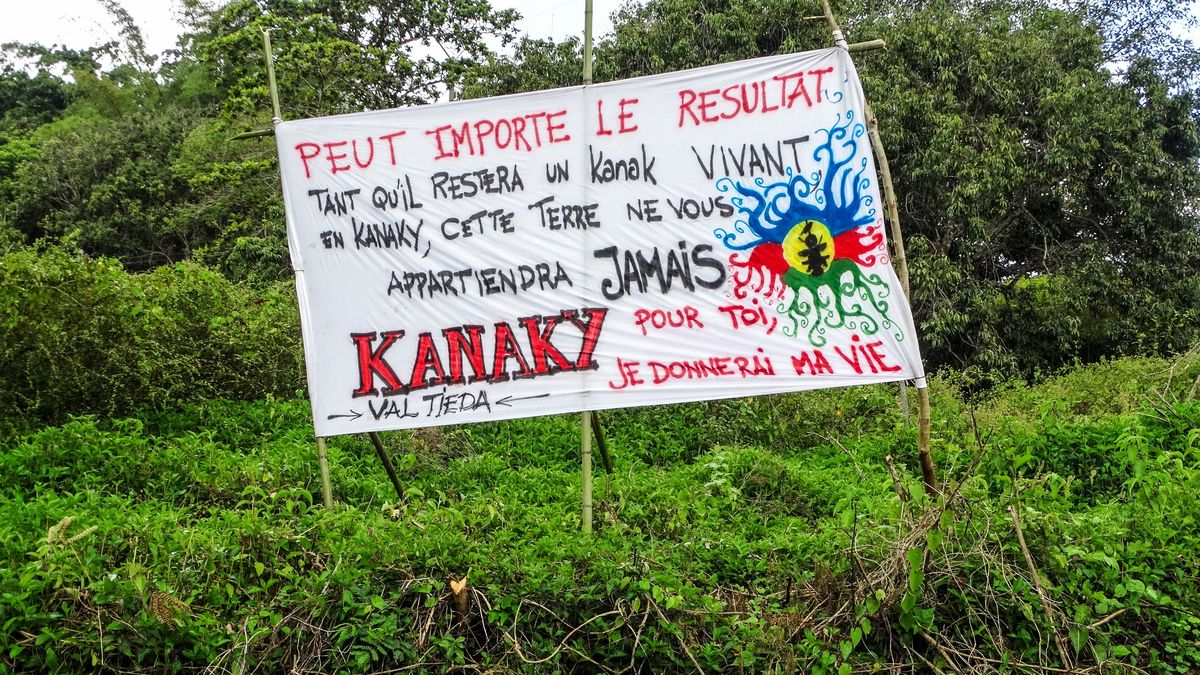 PEUT IMPORTE LE RESULTAT,
TANT QU'IL RESTERA UN Kanak VIVANT
EN KANAKY, CETTE TERRE NE VOUS
APPARTIENDRA JAMAIS
KANAKY POUR TOI,
JE DONNERAI MA VIE
→ VAL TIEDA ←